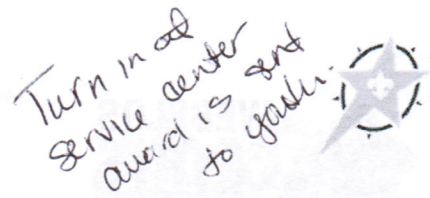 Turn in at
service center
award is sent
to youth.